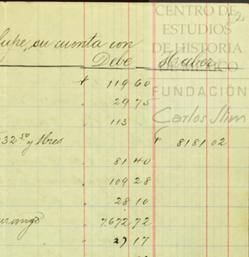 CENTRO DE
ESTUDIOS
DE HISTORIA
DE MÉXICO
FUNDACIÓN
Carlos Slim
su cuenta con
Debe Haber
119 60
29 75
113
32 50 y Hres 8181 02
81 40
109 28
28 10
urango 7672 72
27 17